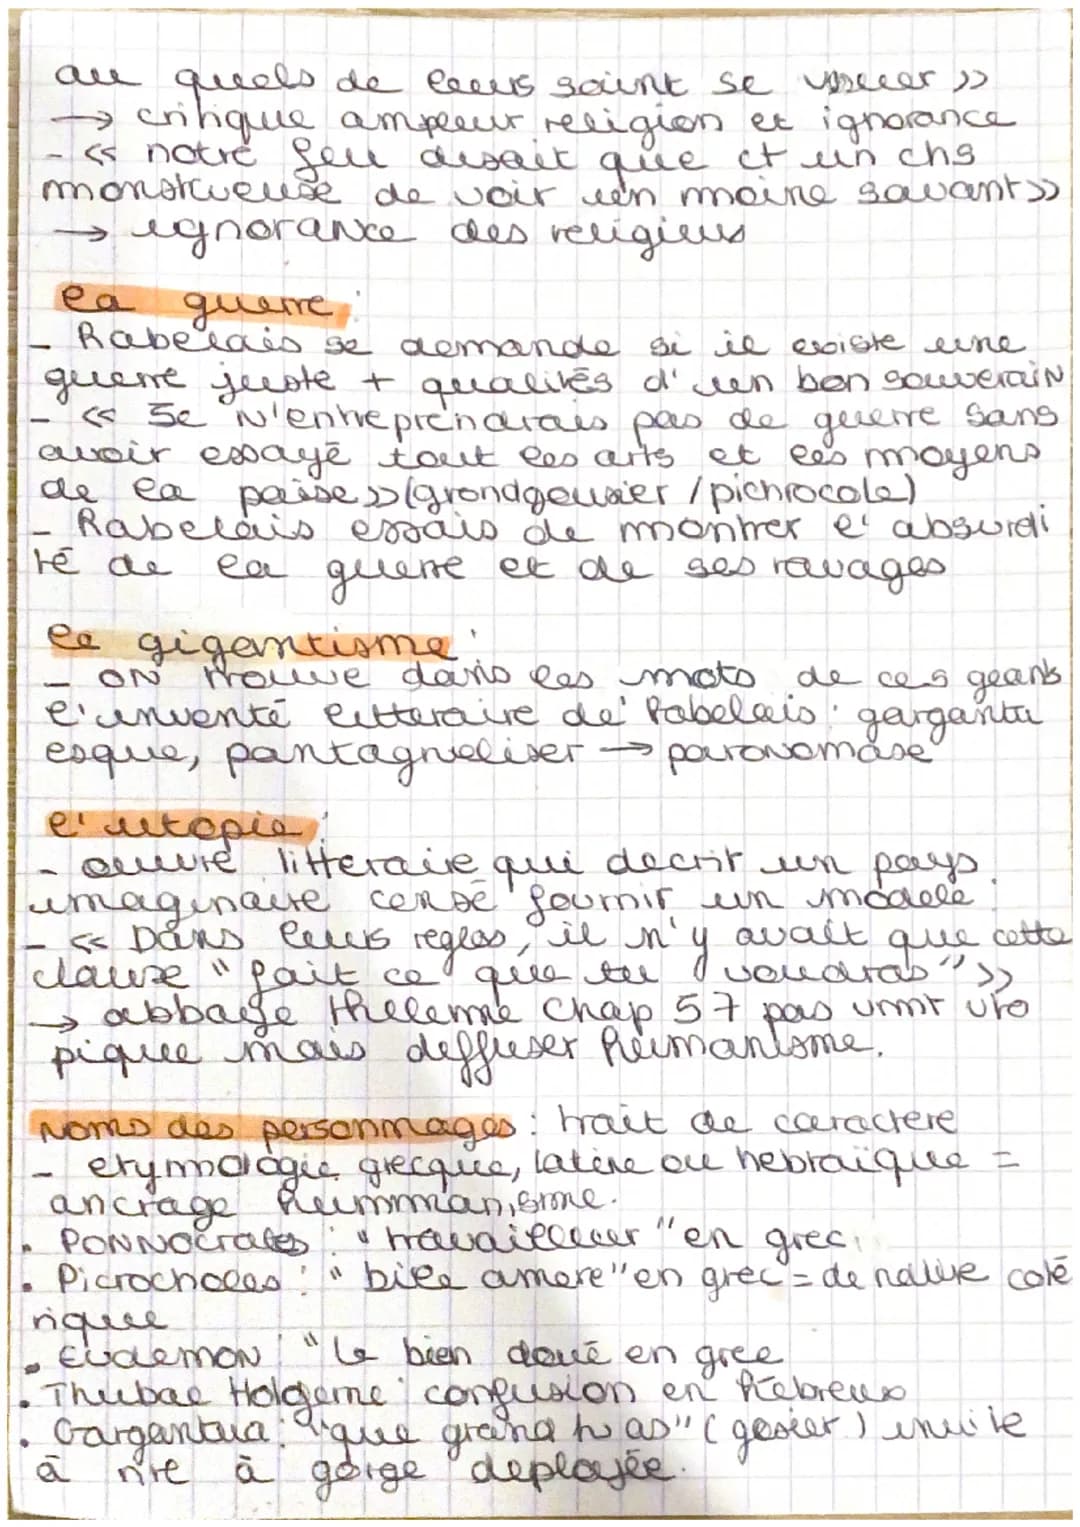 au quels de leurs saint se vouer »
→ critique ampleur religion et ignorance
- « notre feu disait que ct un chs
monstrueuse de voir un moine savant »
→ ignorance des religieus
la guerre :
- Rabelais se demande si il existe une
guerre juste + qualités d'un bon souverain
- « Je n'entreprendrais pas de guerre sans
avoir essayé tout les arts et les moyens
de la paise » (grondgousier / pichrocole)
- Rabelais essais de montrer l'absurdi
té de la guerre et de ses ravages
le gigantisme :
- on trouve dans les mots de ces geants
l'inventé litteraire de Rabelais : gargantu
esque, pantagrueliser → paronomase
l'utopie :
- oeuvre litteraire qui decrit un pays
imaginaire censé fournir un modele :
- « Dans leurs regles, il n'y avait que cette
clause " fait ce que tu voudras " »
→ abbaye thelleme Chap 57 pas vrmt uto
pique mais deffuser humanisme.
Noms des personnages : trait de caractere
- etymologie grecque, latine ou hebraïque =
ancrage hummanisme.
• PONNOcrates : " travailleur " en grec
• Picrocholes : " bile amere " en grec = de nature colé
rique
• Eudemon : " le bien doué en grec
• Thubal Holoferne : confusion en hebreux
• Gargantua : " que grand tu as " ( gosier ) invite
à rire à gorge deployée.